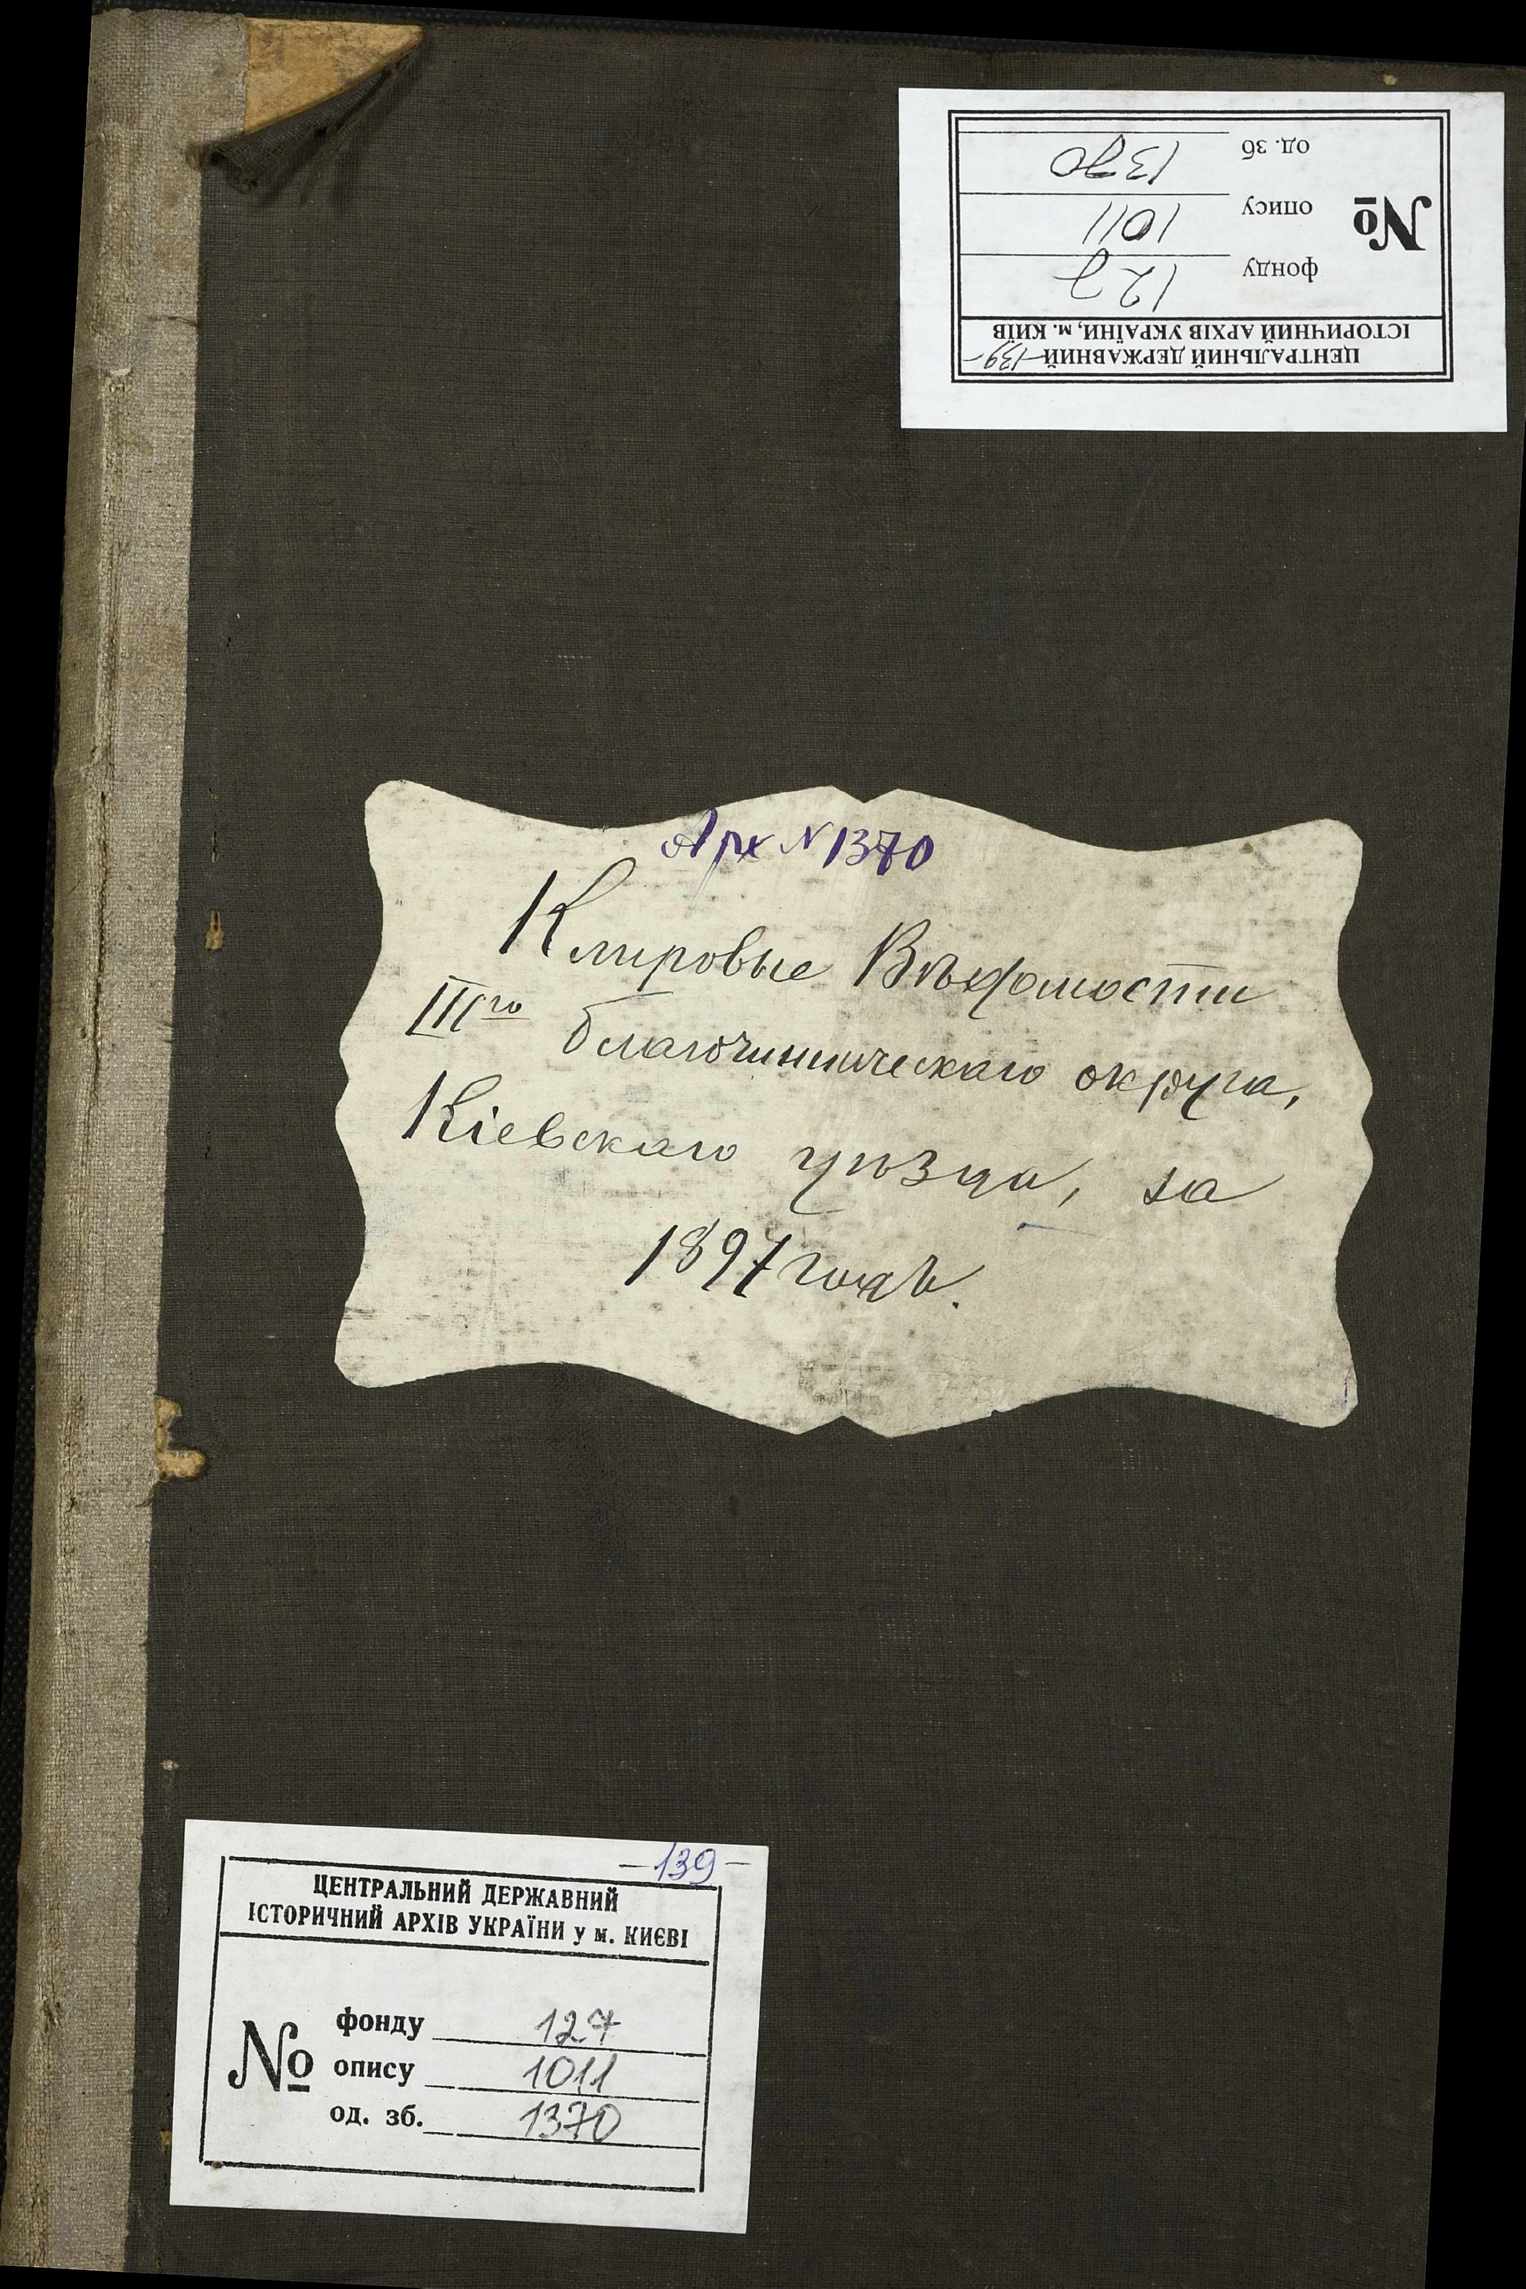 ЦЕНТРАЛЬНИЙ ДЕРЖАВНИЙ -139-
ІСТОРИЧНИЙ АРХІВ УКРАЇНИ, м. КИЇВ
№
фонду 127
опису 1011
од. зб 1370
Арх N 1370
Клировые Вѣдомости
III го благочинническаго округа,
Кіевскаго уѣзда, за
1897 годъ.
-139-
ЦЕНТРАЛЬНИЙ ДЕРЖАВНИЙ
ІСТОРИЧНИЙ АРХІВ УКРАЇНИ у м. КИЄВІ
№
фонду 127
опису 1011
од. зб. 1370